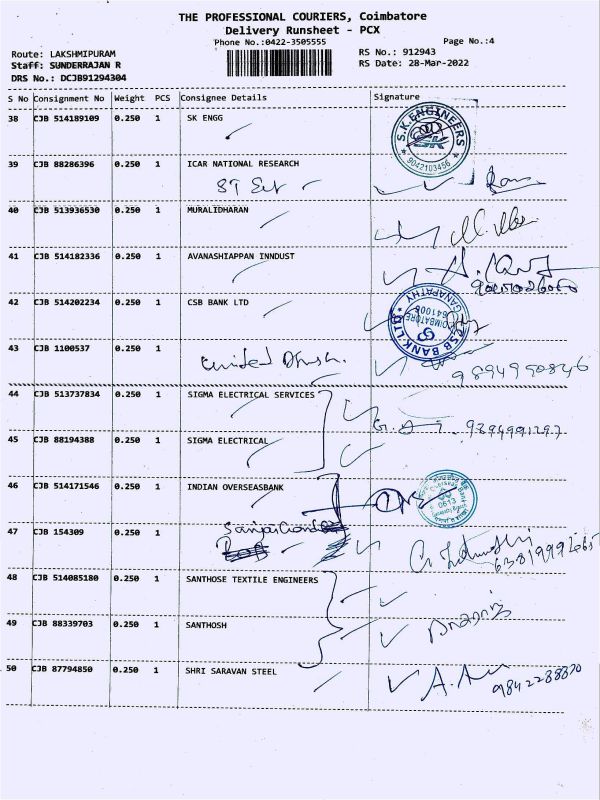 THE PROFESSIONAL COURIERS, Coimbatore
Delivery Runsheet - PCX
Phone No.:0422-3505555 Page No.:4
Route: LAKSHMIPURAM RS No.: 912943
Staff: SUNDERRAJAN R RS Date: 28-Mar-2022
DRS No.: DCJB91294304
S No Consignment No Weight PCS Consignee Details Signature
38 CJB 514189109 0.250 1 SK ENGG
S.K.ENGINEERS
9042103456
39 CJB 88286396 0.250 1 ICAR NATIONAL RESEARCH
40 CJB 513936530 0.250 1 MURALIDHARAN
41 CJB 514182336 0.250 1 AVANASHIAPPAN INNDUST
42 CJB 514202234 0.250 1 CSB BANK LTD
CSB BANK LTD. GANAPATHY
COIMBATORE 641006
43 CJB 1100537 0.250 1
44 CJB 513737834 0.250 1 SIGMA ELECTRICAL SERVICES
45 CJB 88194388 0.250 1 SIGMA ELECTRICAL
46 CJB 514171546 0.250 1 INDIAN OVERSEASBANK
0613
47 CJB 154309 0.250 1
48 CJB 514085180 0.250 1 SANTHOSE TEXTILE ENGINEERS
49 CJB 88339703 0.250 1 SANTHOSH
50 CJB 87794850 0.250 1 SHRI SARAVAN STEEL